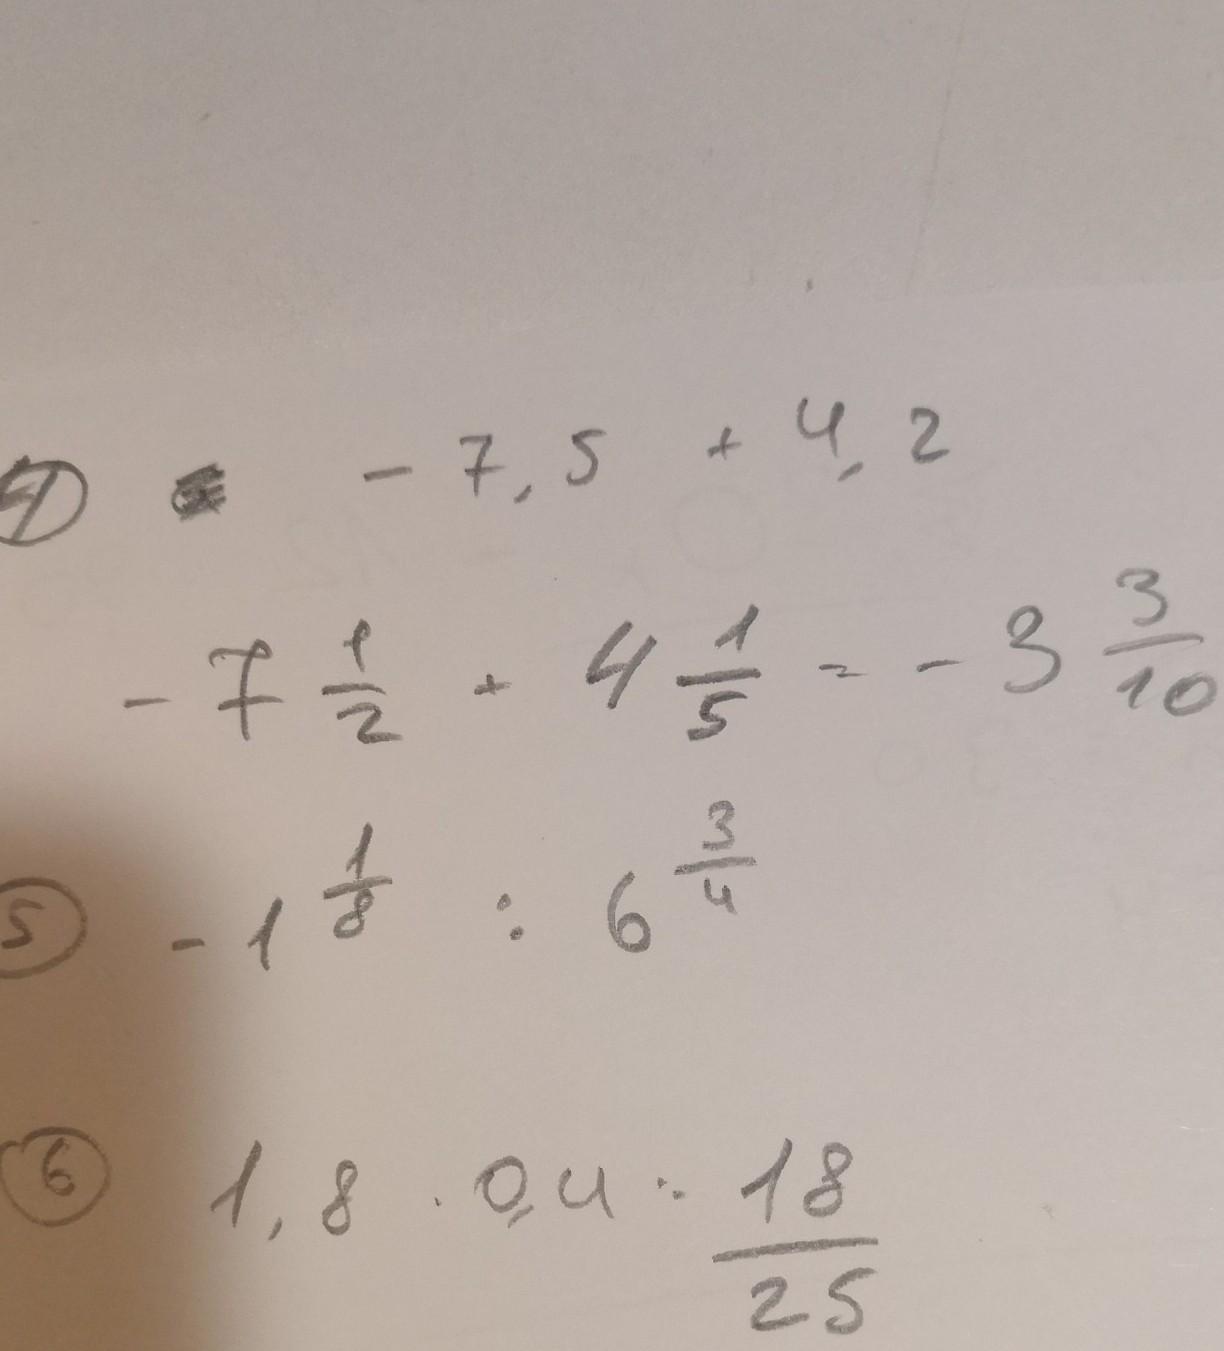 ④ - 7,5 + 4,2
- 7 1/2 + 4 1/5 = - 3 3/10
⑤ - 1 1/8 : 6 3/4
⑥ 1,8 · 0,4 : 18/25